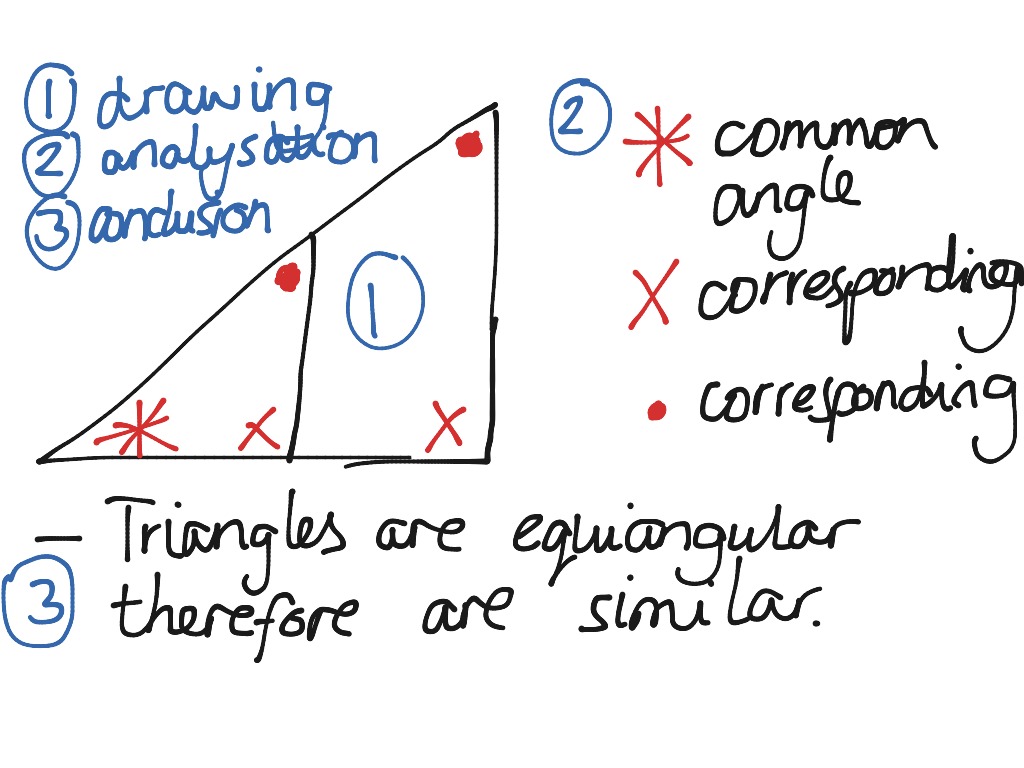 1 drawing
2 analysation
3 conclusion
1
2 * common
angle
X corresponding
• corresponding
— Triangles are equiangular
3 therefore are similar.